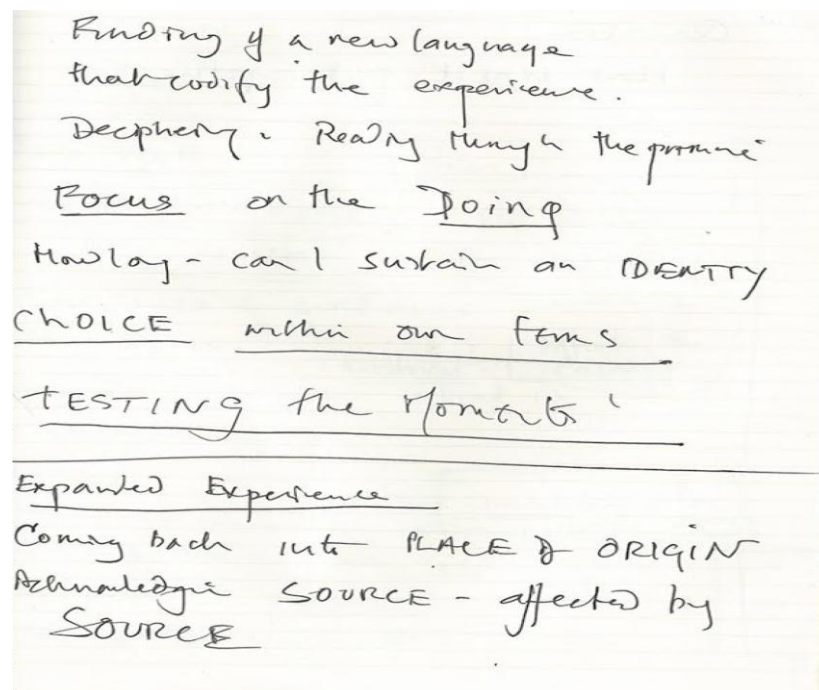 Finding of a new language
that codify the experience.
Deciphering. Reading through the
Focus on the Doing
How long - can I sustain an IDENTITY
CHOICE within our
TESTING the Moments
Expanded Experience
Coming back into PLACE of ORIGIN
Acknowledge SOURCE - affected by
SOURCE